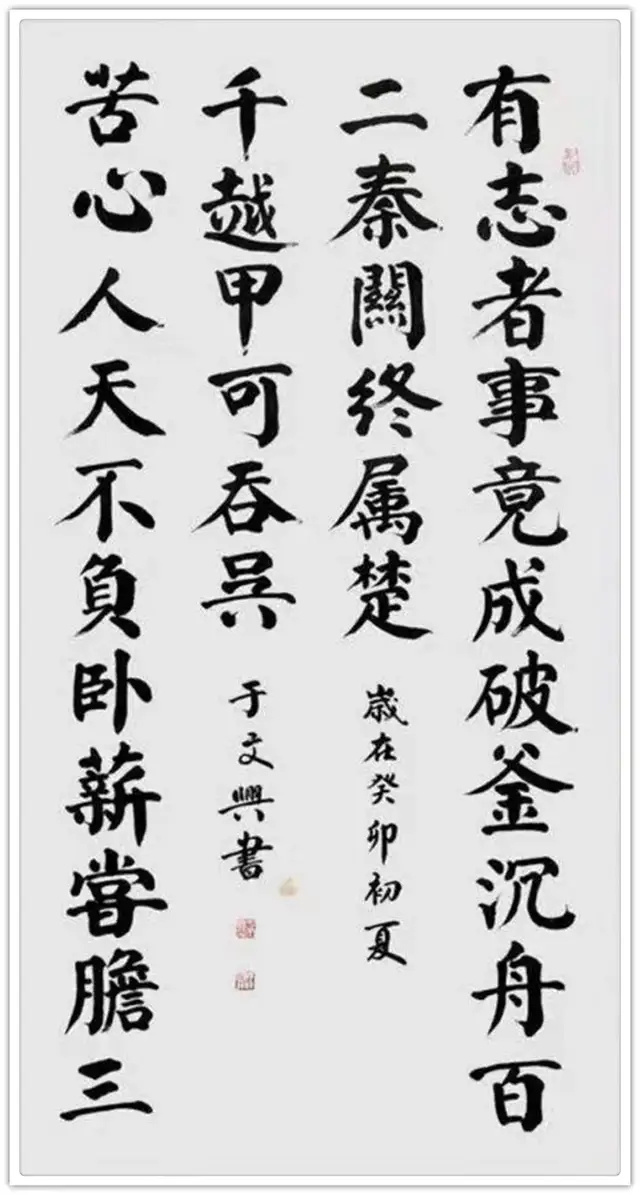 有志者事竟成破釜沉舟百
二秦關终属楚
歲在癸卯初夏
苦心人天不負卧薪嘗膽三
千越甲可吞吳
于文興書